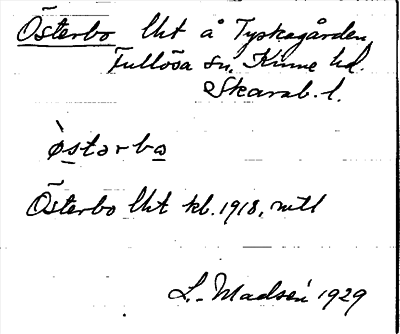 Österbo lht å Tyskagården,
Fullösa sn. Kinne hd.
Skarab. l.
òstərbo
Österbo lht kb. 1918, mtl
L. Madsén 1929